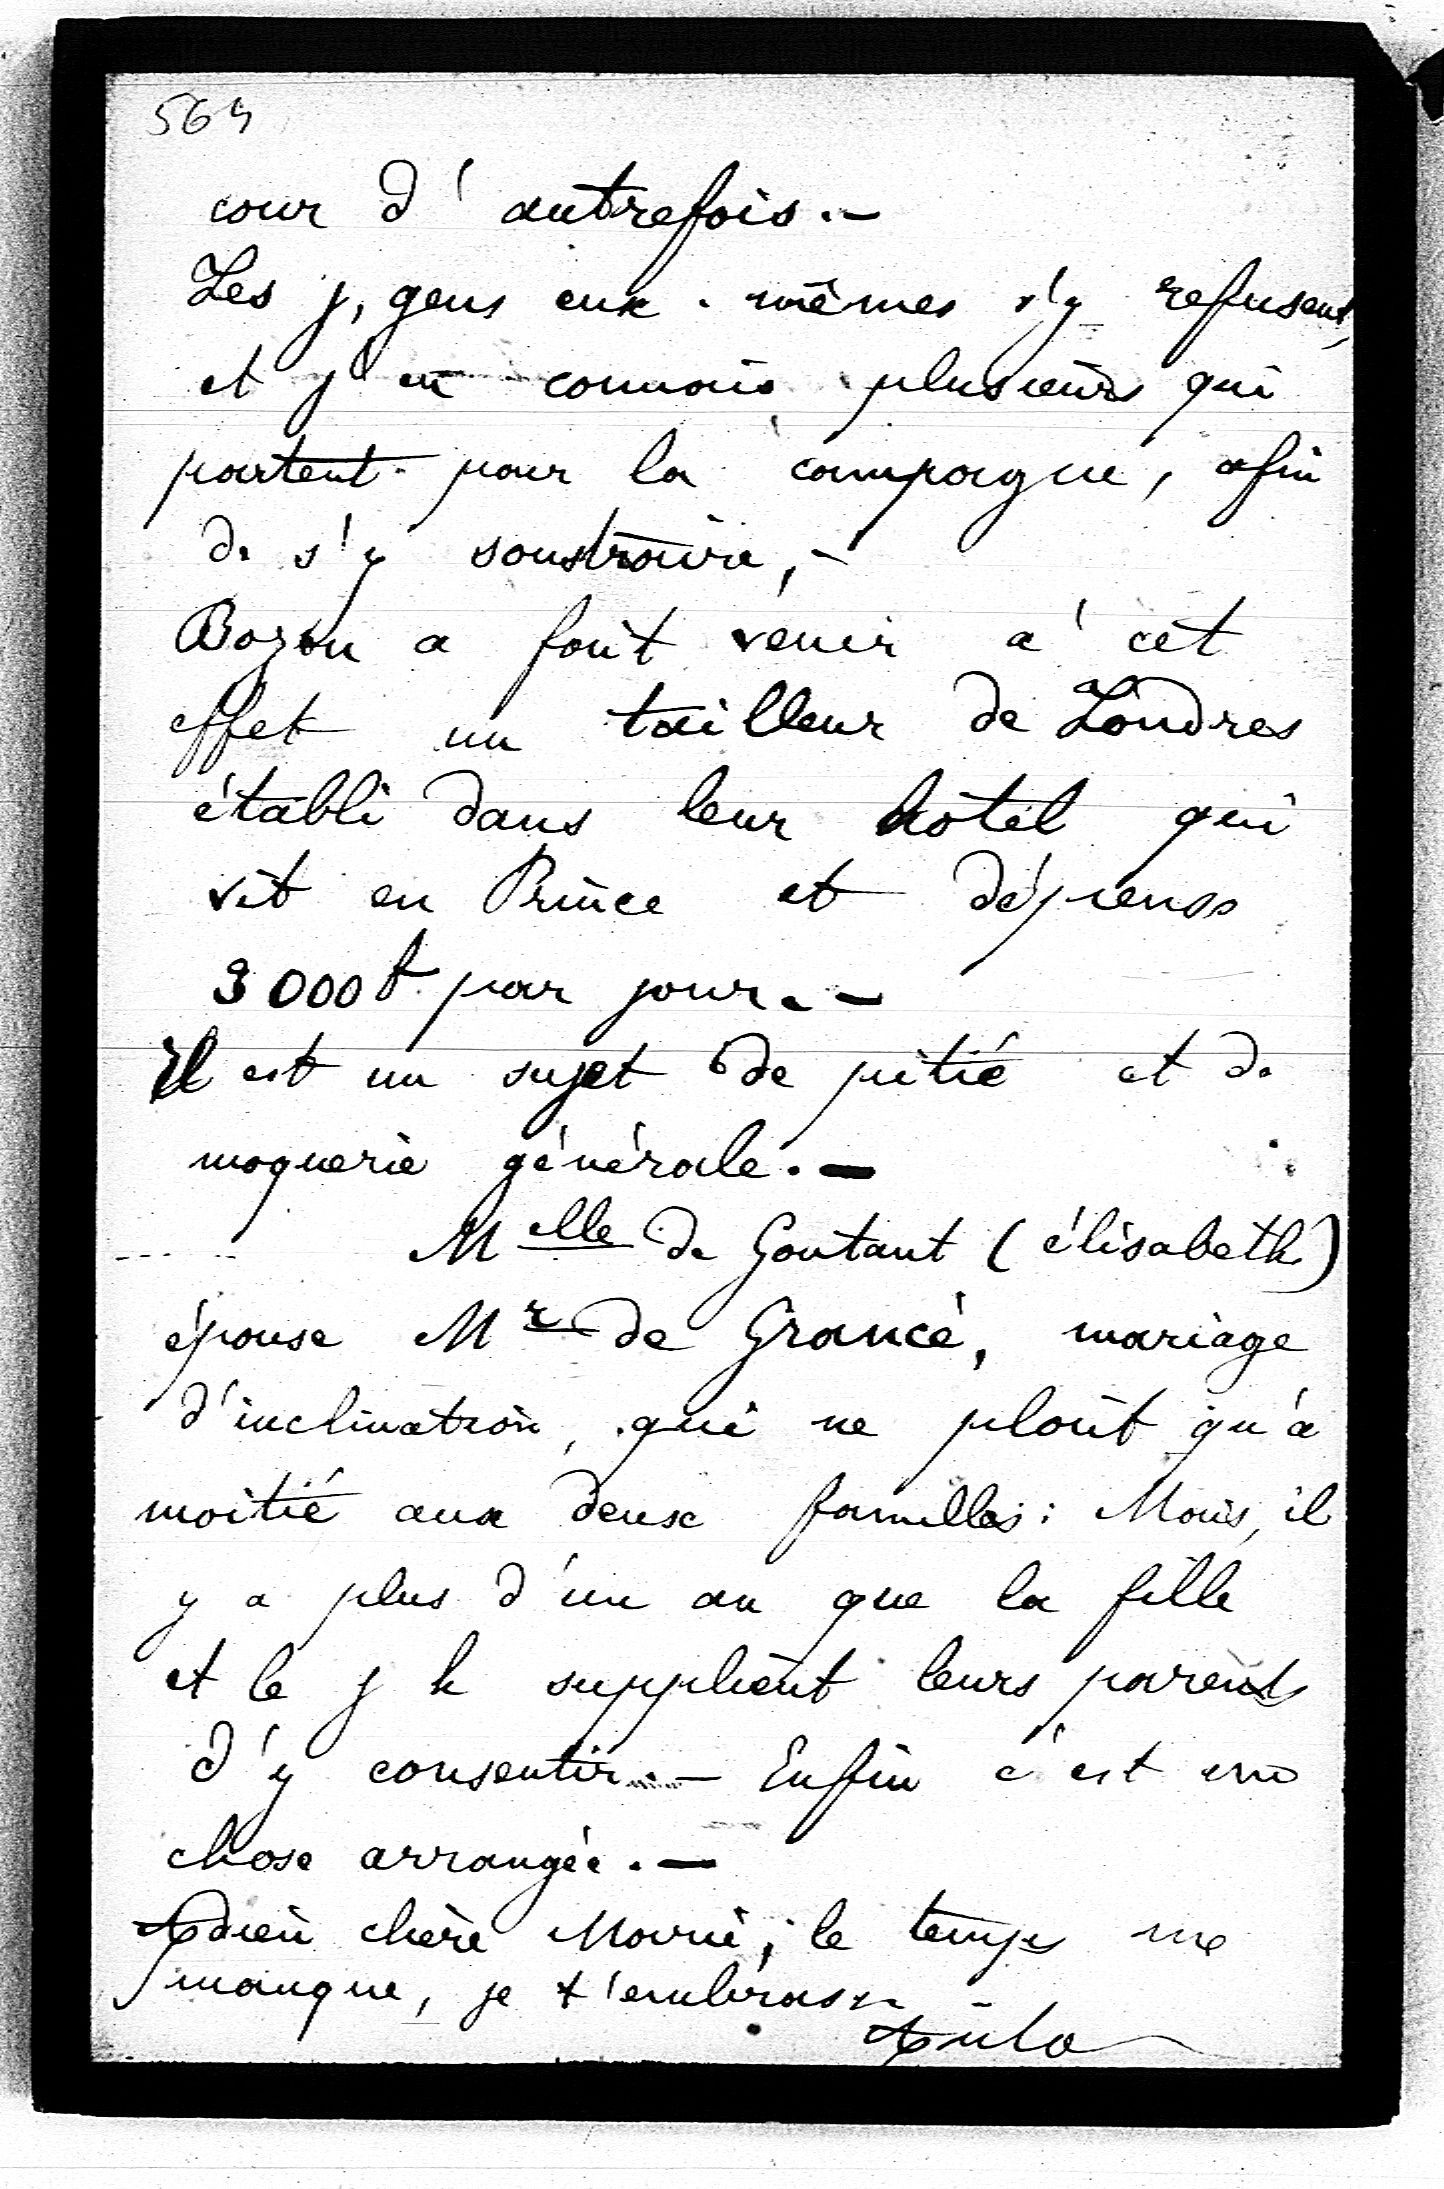 564
cour d'autrefois.—
Les j, gens eux-mêmes s'y refusent,
et j'en connais plusieurs qui
partent pour la campagne, afin
de s'y soustraire,—
Bozon a fait venir à cet
effet un tailleur de Londres
établi dans leur hôtel qui
vit en Prince et dépense
3000f par jour.—
Il est un sujet de pitié et de
moquerie générale.—
Melle de Gontaut (élisabeth)
épouse Mr de Grancé, mariage
d'inclination, qui ne plait qu'à
moitié aux deux familles: Mais, il
y a plus d'un an que la fille
et le j h supplient leurs parents
d'y consentir.— Enfin c'est une
chose arrangée.—
Adieu chère Marie, le temps me
manque, je t'embrasse